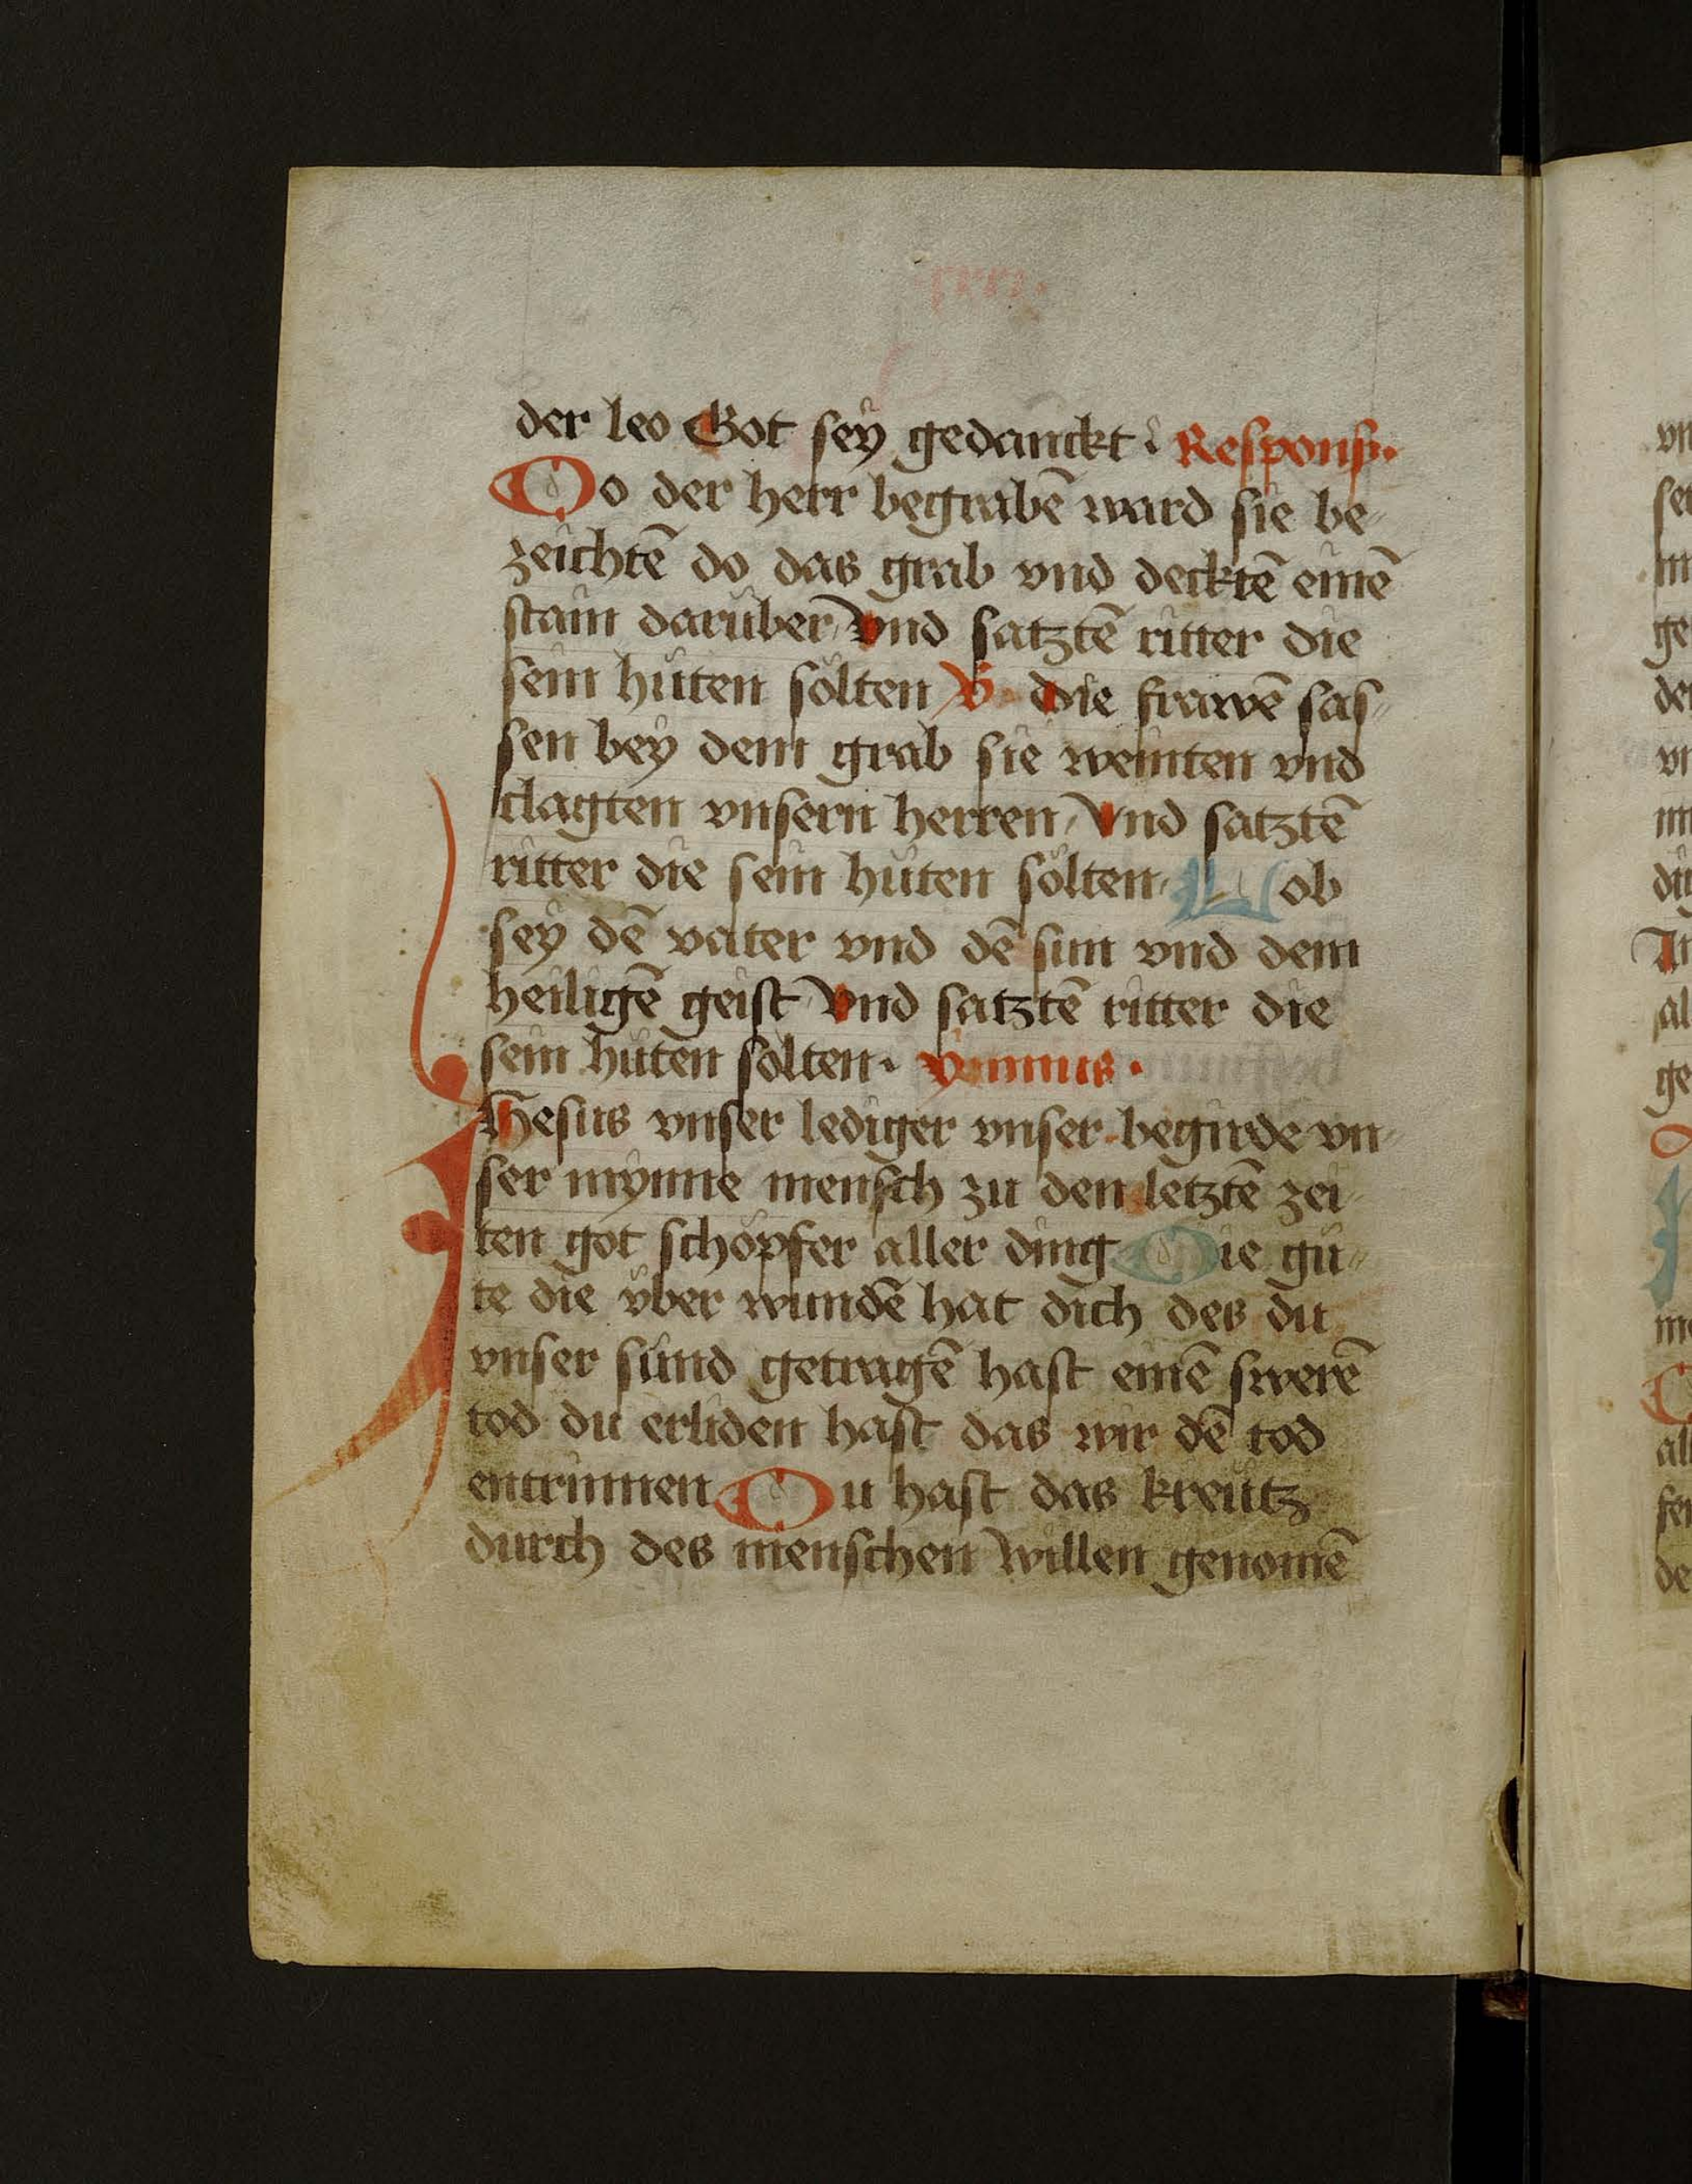 der leo Got sey gedanckt · Respons·
Do der herr begrabē ward sie be⸗
zeichtē do das grab vnd decktē einē
stain darüber Vnd satztē ritter die
sein hüten sölten V Die frawē sas⸗
sen bey dem grab sie weinten vnd
clagten vnsern herren, Vnd satztē
ritter die sein hüten sölten, Lob
sey dē vater vnd dē sun vnd dem
heiligē geist Vnd satztē ritter die
sein hüten sölten. Ymnus.
Jhesus vnser lediger vnser begirde vn⸗
ser mynne mensch zu den letztē zei⸗
ten got schöpfer aller ding Die gü⸗
te die über wundē hat dich des du
vnser sünd getragē hast einē swerē
tod du erliden hast das wir dē tod
entrinnen Du hast das kreütz
durch des menschen willen genomē